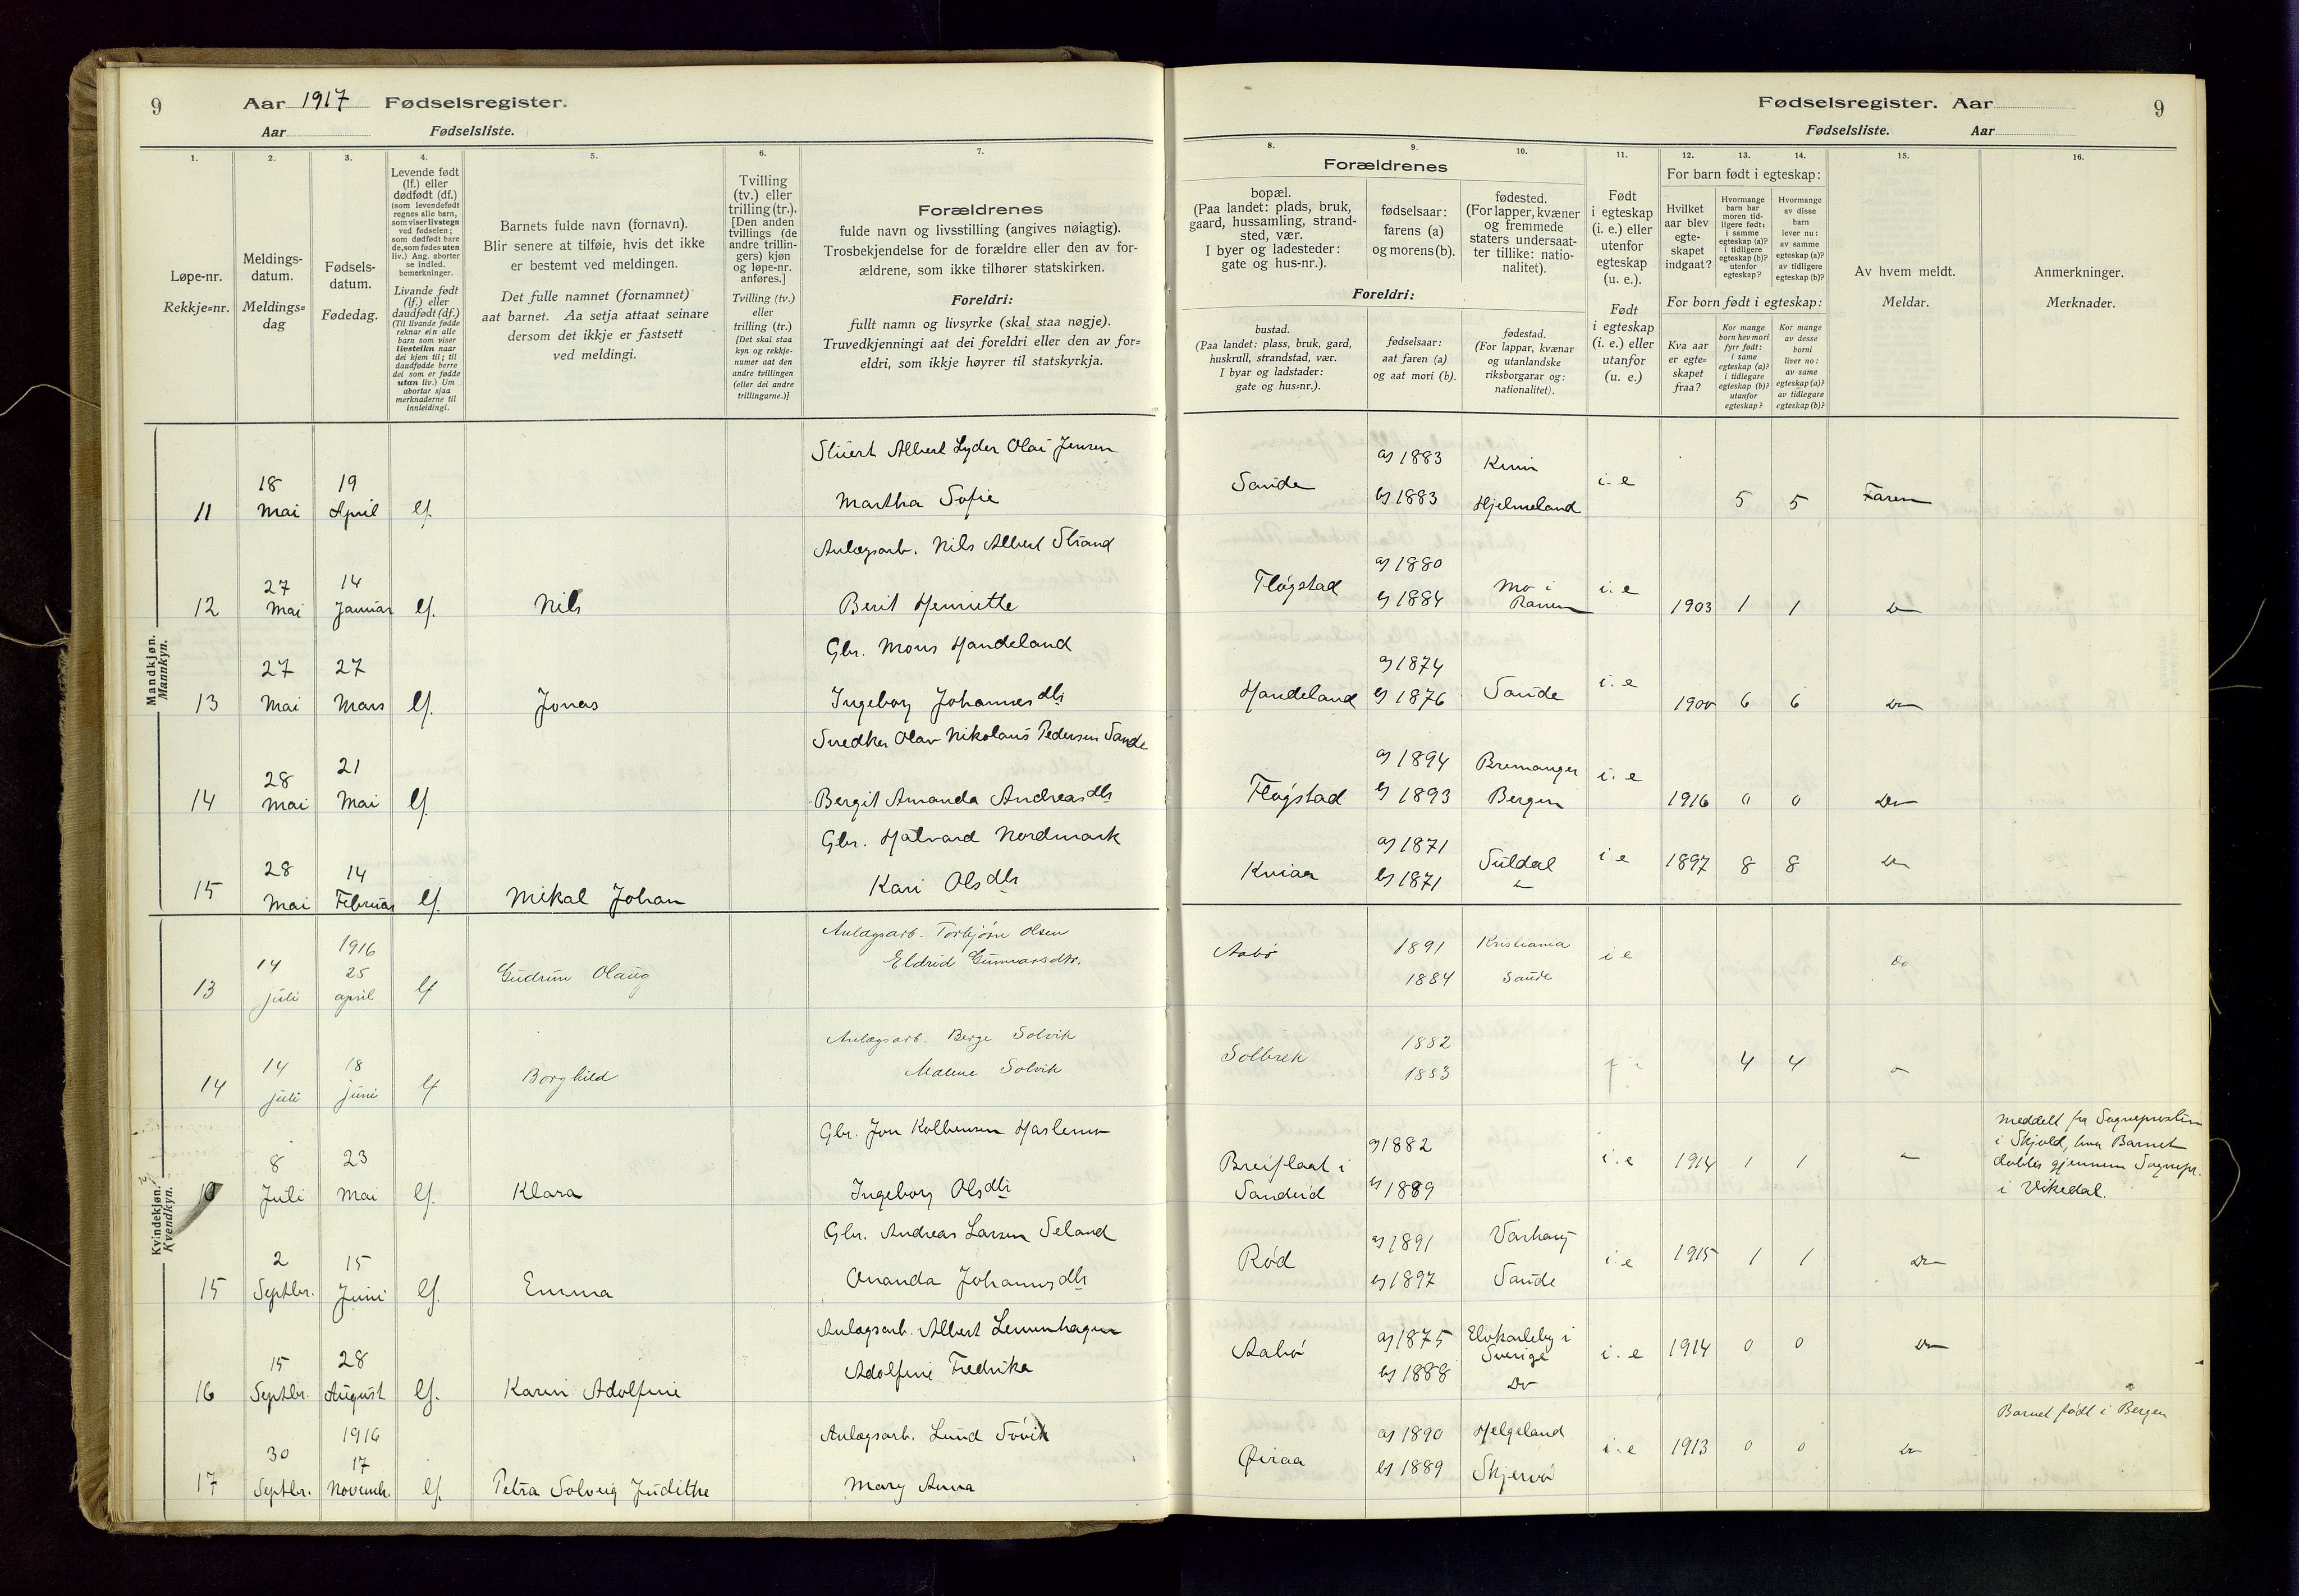 9
Aar 1917 Fødselsregister.
Aar Fødselsliste.
Fødselsregister. Aar
9
Fødselsliste. Aar
1.
2.
3.
4.
5.
6.
7.
Løpe-nr.
Rekkje=nr.
Meldings-
datum.
Meldings=
dag
Fødsels-
datum.
Fødedag.
Levende født
(lf.) eller
dødfødt (df.)
(som levendefødt
regnes alle barn,
som viser livstegn
ved fødselen;
som dødfødt bare
de, som fødes uten
liv.) Ang. aborter
se indled.
bemerkninger.
Livande født
(lf.) eller
daudfødt (df.)
(Til livande fødde
reknar ein alle
barn som viser
livsteikn naar
dei kjem til; til
daudfødde berre
dei som er fødde
utan liv.) Um
abortar sjaa
merknaderne til
innleidingi.
Barnets fulde navn (fornavn).
Blir senere at tilføie, hvis det ikke
er bestemt ved meldingen.
Det fulle namnet (fornamnet)
aat barnet. Aa setja attaat seinare
dersom det ikkje er fastsett
ved meldingi.
Tvilling
(tv.) eller
trilling (tr.).
[Den anden
tvillings (de
andre trillin-
gers) kjøn
og løpe-nr.
anføres.]
Tvilling (tv.)
eller
trilling (tr.)
[Det skal staa
kyn og rekkje-
numer aat den
andre tvillingen
(eller dei andre
trillingarne.)]
Forældrenes
fulde navn og livsstilling (angives nøiagtig).
Trosbekjendelse for de forældre eller den av for-
ældrene, som ikke tilhører statskirken.
Foreldri:
fullt namn og livsyrke (skal staa nøgje).
Truvedkjenningi aat dei foreldri eller den av for=
eldri, som ikkje høyrer til statskyrkja.
8.
9.
10.
11.
12.
13.
14.
15.
16.
Forældrenes
bopæl.
(Paa landet: plads, bruk,
gaard, hussamling, strand-
sted, vær.
I byer og ladesteder:
gate og hus-nr.).
fødselsaar:
farens (a)
og morens (b).
fødested.
(For lapper, kvæner
og fremmede
staters undersaat-
ter tillike: natio-
nalitet).
Foreldri:
bustad.
(Paa landet: plass, bruk, gard,
huskrull, strandstad, vær.
I byar og ladstader:
gate og hus=nr.).
fødselsaar:
aat faren (a)
og aat mori (b).
fødestad.
(For lappar, kvænar
og utanlandske
riksborgarar og:
nationalitet).
Født
i egteskap
(i. e.) eller
utenfor
egteskap
(u. e.).
Født
i egteskap
(i. e.) eller
utanfor
(u. e.)
For barn født i egteskap:
Hvilket
aar blev
egte-
skapet
indgaat?
Hvormange
barn har
moren tid-
ligere født:
i samme
egteskap (a)?
i tidligere
egteskap (b)?
utenfor
egteskap?
Hvormange
av disse
barn
lever nu:
av samme
egteskap (a)?
av tidligere
egteskap (b)?
For born født i egteskap:
Kva aar
er egte=
skapet
fraa?
Kor mange
born hev mori
fyrr født:
i same
egteskap (a)?
i tidlegare
egteskap (b)?
utanfor
egteskap?
Kor mange
av desse
borni
liver no:
av same
egteskap (a)?
av tidlegare
egteskap (b)?
Av hvem meldt.
Meldar.
Anmerkninger.
Merknader.
Mandkjøn.
Mannkyn.
11 18 Mai 19 April lf. Albert Lyder Olai Jensen
Martha Sofie
Sande a) 1883 b) 1883 Hjelmeland i. e 5 5 Faren
12 27 Mai 14 Januar lf. Nils Anlægsarb. Nils Albert Strand
Berit Henriette
Fløgstad a) 1880 b) 1884 Mo i Ranen i. e 1903 1 1 Do
13 27 Mai 27 Mars lf. Jonas Gbr. Mons Handeland
Ingeborg Johannesdtr
Handeland a) 1874 b) 1876 Sande i. e 1900 6 6 Do
14 28 Mai 21 Mai lf. Snedker Olav Nikolaus Pedersen Sande
Bergit Amanda Andreasdtr
Fløgstad a) 1894 b) 1893 Bremanger Bergen i. e 1916 0 0 Do
15 28 Mai 14 Februar lf. Mikal Johan Gbr. Halvard Nordmark
Kari Olsdtr
Kviaa a) 1871 b) 1871 Suldal i e 1897 8 8 Do
Kvindekjøn.
Kvendkyn.
13 14 juli 1916 25 april lf Gudrun Olaug Anlægsarb. Torbjørn Olsen
Eldrid Gunnarsdtr.
Aabø 1891 1884 Kristiania Sande i e Do
14 14 juli 18 juni lf Borghild Anlægsarb. Berge Solvik
Malene Solvik
Solbrek 1882 1883 4 4
8 Juli 23 Mai lf. Klara Gbr. Jon Kolbensen
Ingeborg Olsdtr
Breiflaat i Sandeid a) 1882 b) 1889 i. e 1914 1 1
Meddelt fra Sognepresten
i Skjold, hvor Barnet
døbtes gjennem Sognepr.
i Vikedal.
15 2 Septbr. 15 Juni lf. Emma Gbr. Andreas Larsen Seland
Ananda Johannesdtr
Rød a) 1891 b) 1897 Varhaug Sande i. e 1915 1 1 Do
16 15 Septbr. 28 August lf. Karin Adolfine Anlægsarb. Albert
Adolfine Fredrika
Aabø a) 1875 b) 1888 Elvkarleby i Sverige Do i. e 1914 0 0 Do
17 30 Septbr. 1916 17 Novemb. lf. Petra Solveig Judithe Anlægsarb. Lund
Mary Anna
Øiraa a) 1890 b) 1889 Helgeland Skjervø i. e 1913 0 0 Do
Barnet født i Bergen